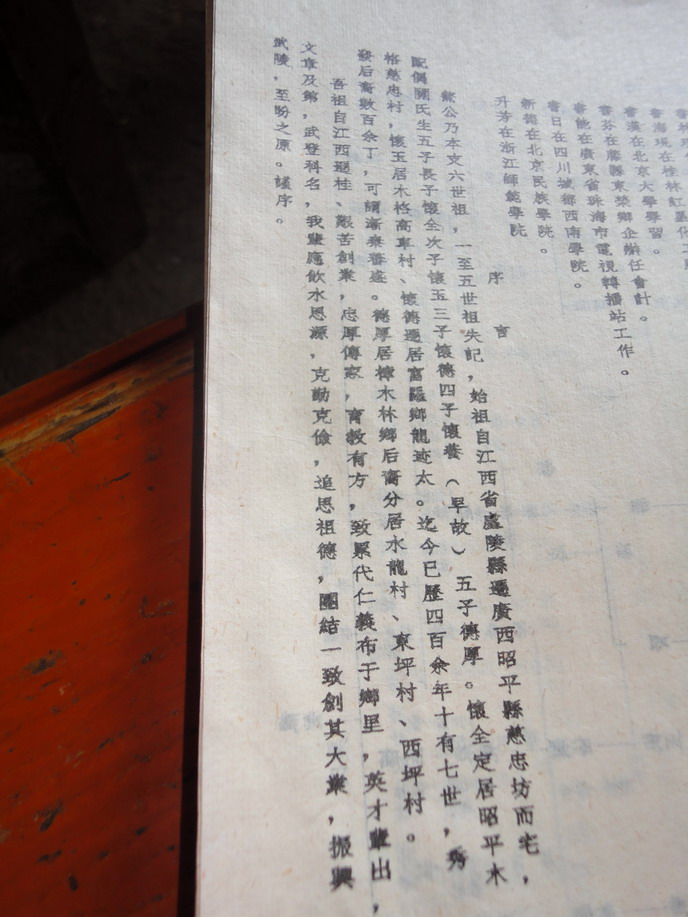 書海現在桂林紅
書漢在北京大學學習。
書芬在藤縣東榮鄉企辦任會計。
書能在廣東省珠海市電視轉播站工作。
書日在四川城鄉西南學院。
新德在北京民族學院。
升芳在浙江師範學院
序言
公乃本支六世祖，一至五世祖失記，始祖自江西省盧陵縣遷廣西昭平縣慈忠坊而宅，
配偶關氏生五子長子懷全次子懷玉三子懷德四子懷養（早故）五子德厚。懷全定居昭平木
格慈忠村，懷玉居木格高車村、懷德遷居富羅鄉龍迹太。迄今已歷四百余年十有七世，秀
發后裔數百余丁，可謂漸衆蕃盛。德厚居樟木林鄉后裔分居水龍村、東坪村、西坪村。
吾祖自江西遷桂、艱苦創業，忠厚傳家，育教有方，致累代仁義布于鄉里，英才輩出，
文章及第，武登科名，我輩應飲水思源，克勤克儉，追思祖德，團結一致創其大業，振興
武陵，至盼之原。謹序。